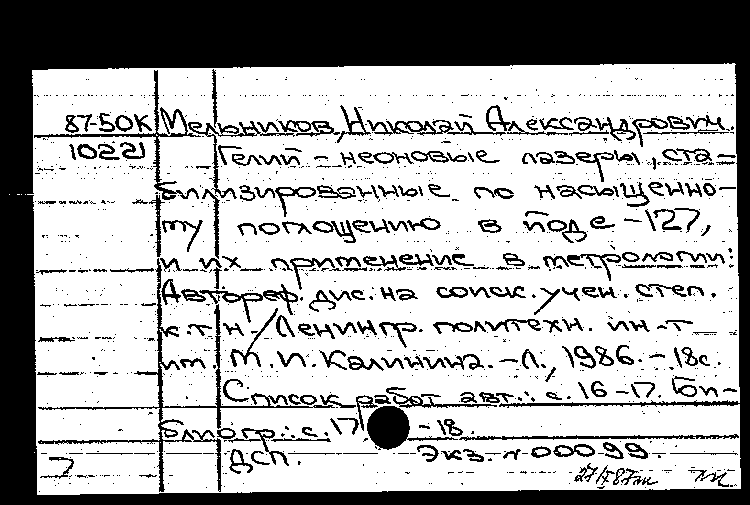 87-50К Мельников, Николай Александрович.
10221 Гелий-неоновые лазеры, ста-
билизированные по насыщенно-
му поглощению в йоде-127,
и их применение в метрологии:
Автореф. дис. на соиск. учен. степ.
к.т.н. / Ленингр. политехн. ин-т
им. М.И. Калинина. - Л., 1986. - 18с.
Список работ авт.: с. 16-17. Биб-
блиогр.: с. 17-18.
ДСП. Экз. № 00099.